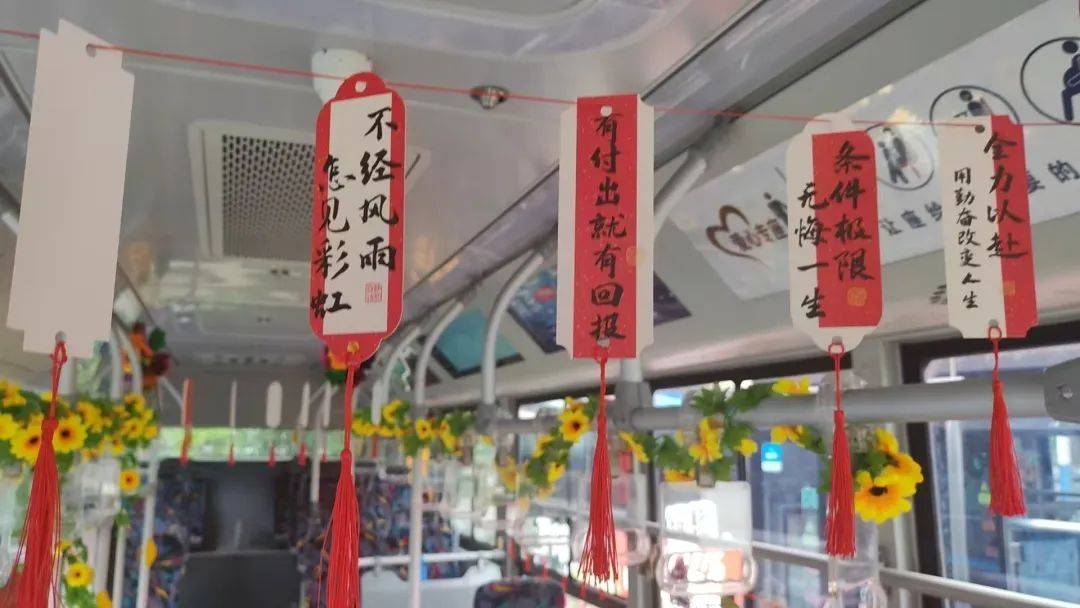 不经风雨
怎见彩虹
有付出就有回报
条件极限
无悔一生
全力以赴
用勤奋改变人生
让座给
要的